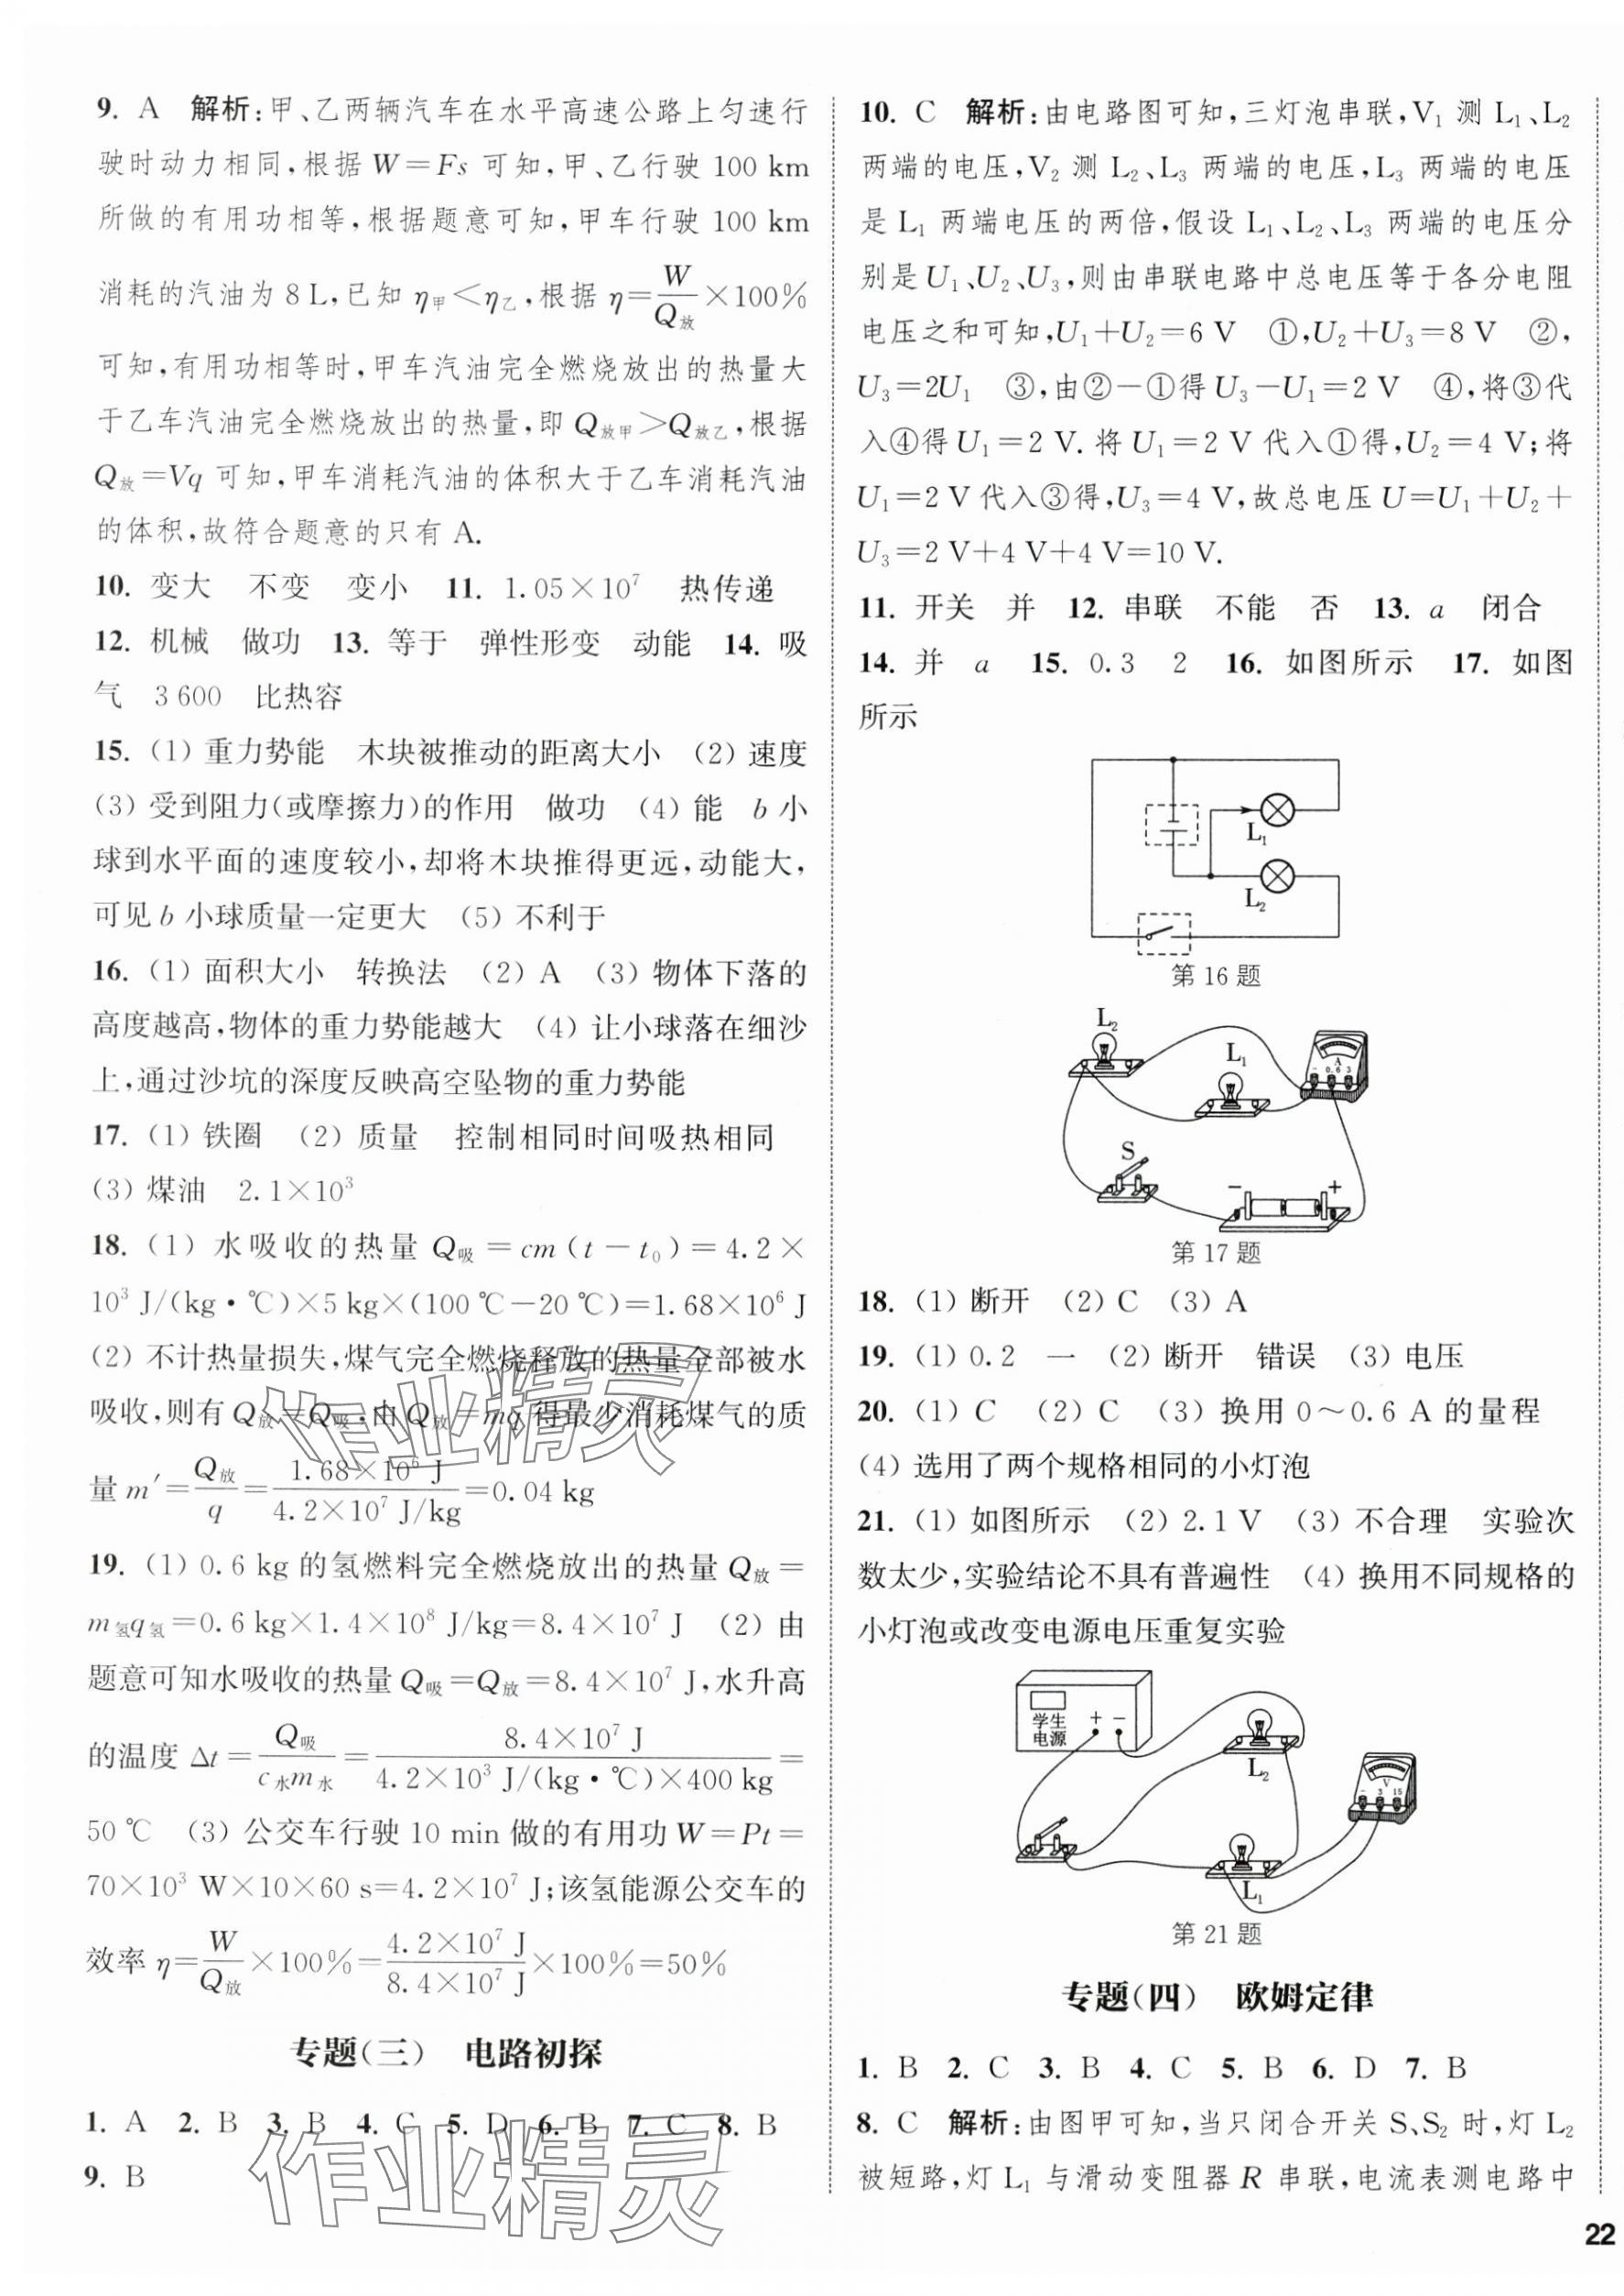 9. A 解析:甲、乙两辆汽车在水平高速公路上匀速行
驶时动力相同,根据 W=Fs 可知,甲、乙行驶 100 km
所做的有用功相等,根据题意可知,甲车行驶 100 km
消耗的汽油为 8 L,已知 η甲<η乙,根据 η=W/Q放×100%
可知,有用功相等时,甲车汽油完全燃烧放出的热量大
于乙车汽油完全燃烧放出的热量,即 Q放甲>Q放乙,根据
Q放=Vq 可知,甲车消耗汽油的体积大于乙车消耗汽油
的体积,故符合题意的只有 A.
10. 变大 不变 变小 11. 1.05×10⁷ 热传递
12. 机械 做功 13. 等于 弹性形变 动能 14. 吸
气 3 600 比热容
15. (1) 重力势能 木块被推动的距离大小 (2) 速度
(3) 受到阻力(或摩擦力)的作用 做功 (4) 能 b 小
球到水平面的速度较小,却将木块推得更远,动能大,
可见 b 小球质量一定更大 (5) 不利于
16. (1) 面积大小 转换法 (2) A (3) 物体下落的
高度越高,物体的重力势能越大 (4) 让小球落在细沙
上,通过沙坑的深度反映高空坠物的重力势能
17. (1) 铁圈 (2) 质量 控制相同时间吸热相同
(3) 煤油 2.1×10³
18. (1) 水吸收的热量 Q吸=cm(t-t₀)=4.2×
10³ J/(kg·℃)×5 kg×(100 ℃-20 ℃)=1.68×10⁶ J
(2) 不计热量损失,煤气完全燃烧释放的热量全部被水
吸收,则有 Q放=Q吸,由 Q放=mq 得最少消耗煤气的质
量 m′=Q放/q=1.68×10⁶ J/4.2×10⁷ J/kg=0.04 kg
19. (1) 0.6 kg 的氢燃料完全燃烧放出的热量 Q放=
m氢q氢=0.6 kg×1.4×10⁸ J/kg=8.4×10⁷ J (2) 由
题意可知水吸收的热量 Q吸=Q放=8.4×10⁷ J,水升高
的温度 Δt=Q吸/c水m水=8.4×10⁷ J/4.2×10³ J/(kg·℃)×400 kg=
50 ℃ (3) 公交车行驶 10 min 做的有用功 W=Pt=
70×10³ W×10×60 s=4.2×10⁷ J;该氢能源公交车的
效率 η=W/Q放×100%=4.2×10⁷ J/8.4×10⁷ J×100%=50%
专题(三) 电路初探
1. A 2. B 3. B 4. C 5. D 6. B 7. C 8. B
9. B
10. C 解析:由电路图可知,三灯泡串联,V₁ 测 L₁、L₂
两端的电压,V₂ 测 L₂、L₃ 两端的电压,L₃ 两端的电压
是 L₁ 两端电压的两倍,假设 L₁、L₂、L₃ 两端的电压分
别是 U₁、U₂、U₃,则由串联电路中总电压等于各分电阻
电压之和可知,U₁+U₂=6 V ①,U₂+U₃=8 V ②,
U₃=2U₁ ③,由②-①得 U₃-U₁=2 V ④,将③代
入④得 U₁=2 V. 将 U₁=2 V 代入①得,U₂=4 V;将
U₁=2 V 代入③得,U₃=4 V,故总电压 U=U₁+U₂+
U₃=2 V+4 V+4 V=10 V.
11. 开关 并 12. 串联 不能 否 13. a 闭合
14. 并 a 15. 0.3 2 16. 如图所示 17. 如图
所示
L₁
L₂
第 16 题
L₂
L₁
A
- 0.6 3
S
- +
第 17 题
18. (1) 断开 (2) C (3) A
19. (1) 0.2 一 (2) 断开 错误 (3) 电压
20. (1) C (2) C (3) 换用 0~0.6 A 的量程
(4) 选用了两个规格相同的小灯泡
21. (1) 如图所示 (2) 2.1 V (3) 不合理 实验次
数太少,实验结论不具有普遍性 (4) 换用不同规格的
小灯泡或改变电源电压重复实验
学生
电源
+ -
L₂
V
- 3 15
L₁
第 21 题
专题(四) 欧姆定律
1. B 2. C 3. B 4. C 5. B 6. D 7. B
8. C 解析:由图甲可知,当只闭合开关 S、S₂ 时,灯 L₂
被短路,灯 L₁ 与滑动变阻器 R 串联,电流表测电路中
22
作业精灵
作业精灵